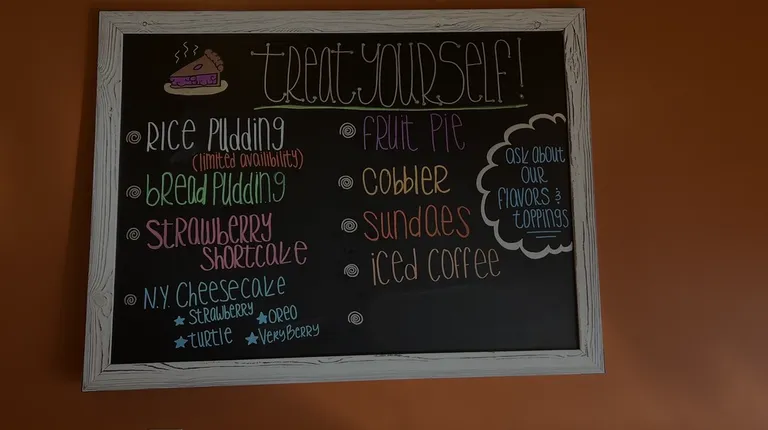 treat yourself!
Rice Pudding
(limited availibility)
bread Pudding
Strawberry
Shortcake
N.Y. Cheesecake
★ Strawberry ★ Oreo
★ turtle ★ Very Berry
Fruit Pie
Cobbler
Sundaes
iced coffee
ask about
our
flavors &
toppings